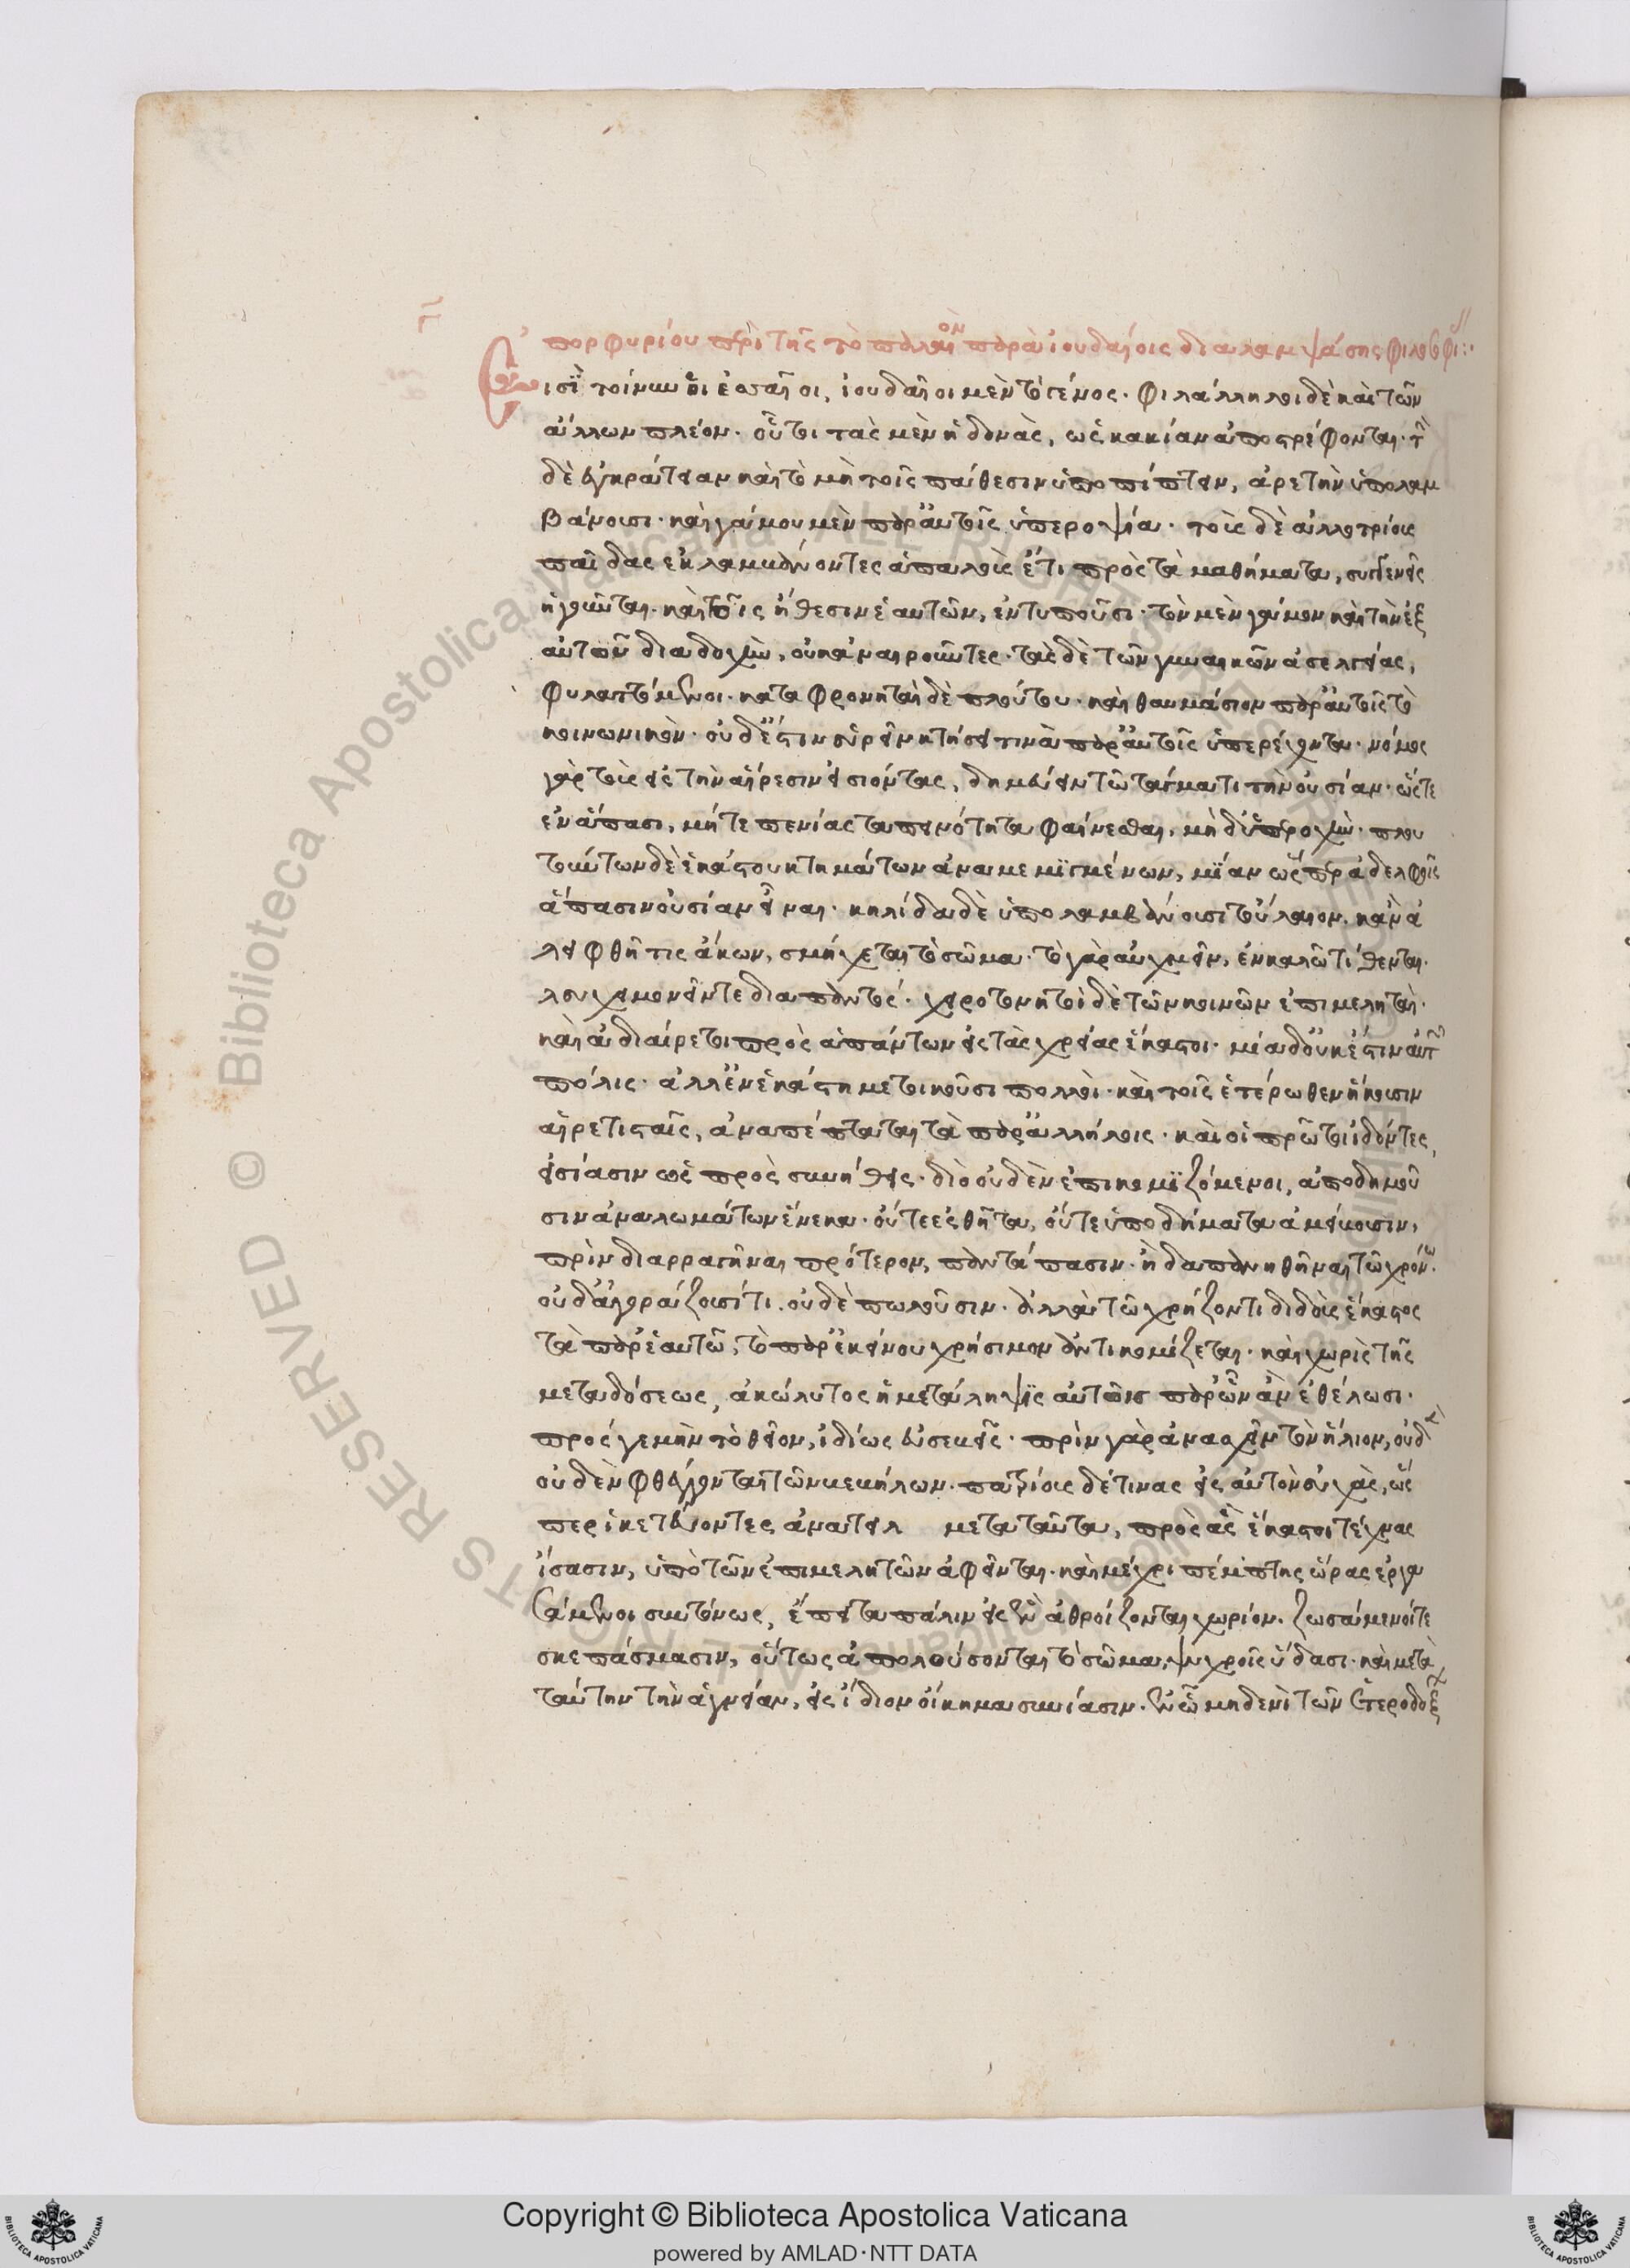 γ
πορφυρίου περὶ τῆς τὸ παλαιὸν παρὰ ἰουδαίοις διαλαμψάσης φιλοσοφί :·
Εἰσὶ τοίνυν οἱ ἐσσαῖοι, ἰουδαῖοι μὲν τὸ γένος· φιλάλληλοι δὲ καὶ τῶν
ἄλλων πλέον· οὗτοι τὰς μὲν ἡδονὰς, ὡς κακίαν ἀποστρέφονται· τὴν
δὲ ἐγκράτειαν καὶ τὸ μὴ τοῖς πάθεσιν ὑποπίπτειν, ἀρετὴν ὑπολαμ
βάνουσι· καὶ γάμου μὲν παρ' αὐτοῖς ὑπεροψία· τοὺς δὲ ἀλλοτρίους
παῖδας ἐκλαμβάνοντες ἁπαλοὺς ἔτι πρὸς τὰ μαθήματα, συγγενεῖς
ἡγοῦνται· καὶ τοῖς ἤθεσιν ἑαυτῶν, ἐντυποῦσι· τὸν μὲν γάμον καὶ τὴν ἐξ
αὐτοῦ διαδοχὴν, οὐκ ἀναιροῦντες· τὰς δὲ τῶν γυναικῶν ἀσελγείας,
φυλαττόμενοι· καταφρονηταὶ δὲ πλούτου· καὶ θαυμάσιον παρ' αὐτοῖς τὸ
κοινωνικὸν· οὐδ' ἔστιν εὑρεῖν κτήσει τινὰ παρ' αὐτοῖς ὑπερέχοντα· νόμος
γὰρ τοὺς εἰς τὴν αἵρεσιν εἰσιόντας, δημεύειν τῷ τάγματι τὴν οὐσίαν· ὥστε
ἐν ἅπασι, μήτε πενίας ταπεινότητα φαίνεσθαι, μήθ' ὑπεροχὴν πλού
του· τῶν δὲ ἑκάστου κτημάτων ἀναμεμϊγμένων, μΐαν ὥσπερ ἀδελφοῖς
ἅπασιν οὐσίαν εἶναι· κηλίδα δὲ ὑπολαμβάνουσι τοὔλαιον· κἂν ἀ
λειφθῇ τις ἄκων, σμήχεται τὸ σῶμα· τὸ γὰρ αὐχμεῖν, ἐν καλῷ τίθενται·
λευχειμονεῖν τε διαπαντός· χειροτονητοὶ δὲ τῶν κοινῶν ἐπιμεληταὶ·
καὶ ἀδιαίρετοι πρὸς ἁπάντων εἰς τὰς χρείας ἕκαστοι· μία δ' οὐκ ἔστιν αὐτῶν
πόλις· ἀλλ' ἐν ἑκάστῃ μετοικοῦσι πολλοὶ· καὶ τοῖς ἑτέρωθεν ἥκουσιν
αἱρετισταῖς, ἀναπέπταται τὰ παρ' ἀλλήλοις· καὶ οἱ πρῶτοι ἰδόντες,
εἰσίασιν ὡς πρὸς συνήθεις· διὸ οὐδὲν ἐπικομϊζόμενοι, ἀποδημοῦ
σιν ἀναλωμάτων ἕνεκα· οὔτε ἐσθῆτα, οὔτε ὑποδήματα ἀμείβουσιν,
πρὶν διαρραγῆναι πρότερον, παντάπασιν· ἢ δαπανηθῆναι τῷ χρόνῳ·
οὐδ' ἀγοράζουσί τι· οὐδὲ πωλοῦσιν· ἀλλὰ τῷ χρήζοντι διδοὺς ἕκαστος
τὰ παρ' ἑαυτῷ, τὸ παρ' ἐκείνου χρήσιμον ἀντικομίζεται· καὶ χωρὶς τῆς
μεταδόσεως, ἀκώλυτος ἡ μετάληψϊς αὐτοῖς παρ' ὧν ἂν ἐθέλωσι·
πρός γε μὴν τὸ θεῖον, ἰδίως εὐσεβεῖς· πρὶν γὰρ ἀνασχεῖν τὸν ἥλιον, οὐδ
οὐδὲν φθέγγονται τῶν βεβήλων· πατρίους δέ τινας εἰς αὐτὸν εὐχὰς, ὥς
περ ἱκετεύοντες ἀνατειλ μετὰ ταῦτα, πρὸς ἃς ἕκαστοι τέχνας
ἴσασιν, ὑπὸ τῶν ἐπιμελητῶν ἀφίενται· καὶ μέχρι πέμπτης ὥρας ἐργα
σάμενοι συντόνως, ἔπειτα πάλιν εἰς ἓν ἀθροίζονται χωρίον· ζωσάμενοί τε
σκεπάσμασιν, οὕτως ἀπολούονται τὸ σῶμα, ψυχροῖς ὕδασι· καὶ μετὰ
ταύτην τὴν ἁγνείαν, εἰς ἴδιον οἴκημα συνίασιν· ἐν ᾧ μηδενὶ τῶν ἑτεροδόξ
Copyright © Biblioteca Apostolica Vaticana
powered by AMLAD·NTT DATA